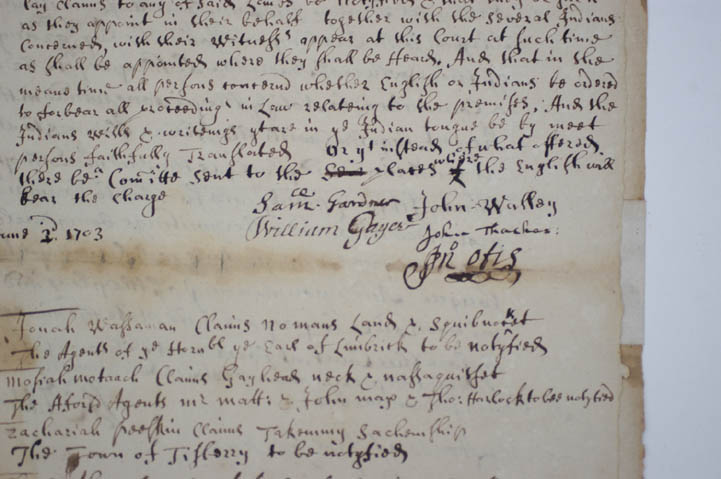 lay Claims to any of said Lands be Notifyed &
as they appoint in their behalf together with the Several Indians
Concerned, with their Witness appear at this Court at such time
as shall be appointed where they shall be Heard. And that in the
meane time all persons concernd whether English or Indians be ordered
to forbear all proceedings in Law relateing to the premises, And the
Indians Wills & writeings yt are in ye Indian tongue be by meet
persons faithfully Translated Or yt insteed of what offered
there be a Comitte Sent to the places where the English will
bear the Charge
Samll Gardner John Walley
William Gayer John Thacher:
June 2d. 1703
Jno otis
Jonah Wassaman Claims Nomans Land & Squibnocket
The Agents of ye Hornbl ye Earl of Limbrick to be notyfied
mosiah motaach Claims Gayhead neck & nassaquitset
The Aforsd Agents mr matt: & John may & Tho: Harlock to bee notyied
Zachariah peeskin Claims Takemmy Sachemship
The Town of Tisberry to be notyfied